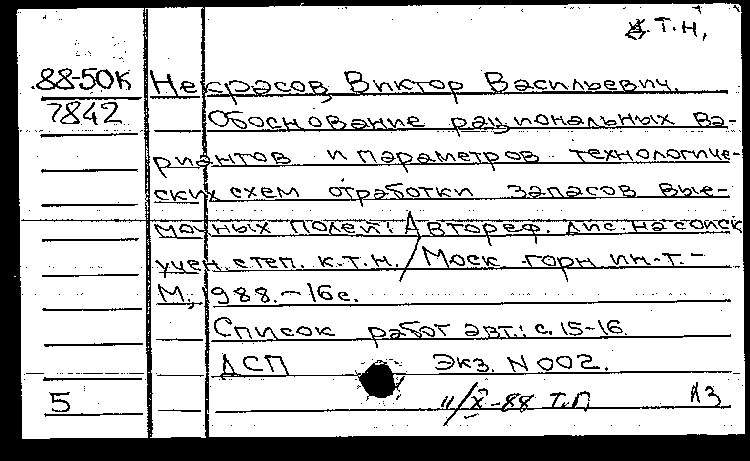 д.т.н.
88-50к Некрасов, Виктор Васильевич.
7842 Обоснование рациональных ва-
риантов и параметров технологиче-
ских схем отработки запасов вые-
мочных полей: Автореф. дис. на соиск
учен. степ. к.т.н. / Моск. горн. ин-т. -
М., 1988. - 16 с.
Список работ авт.: с. 15-16.
ДСП Экз. N 002.
5 11/X-88 Т.П